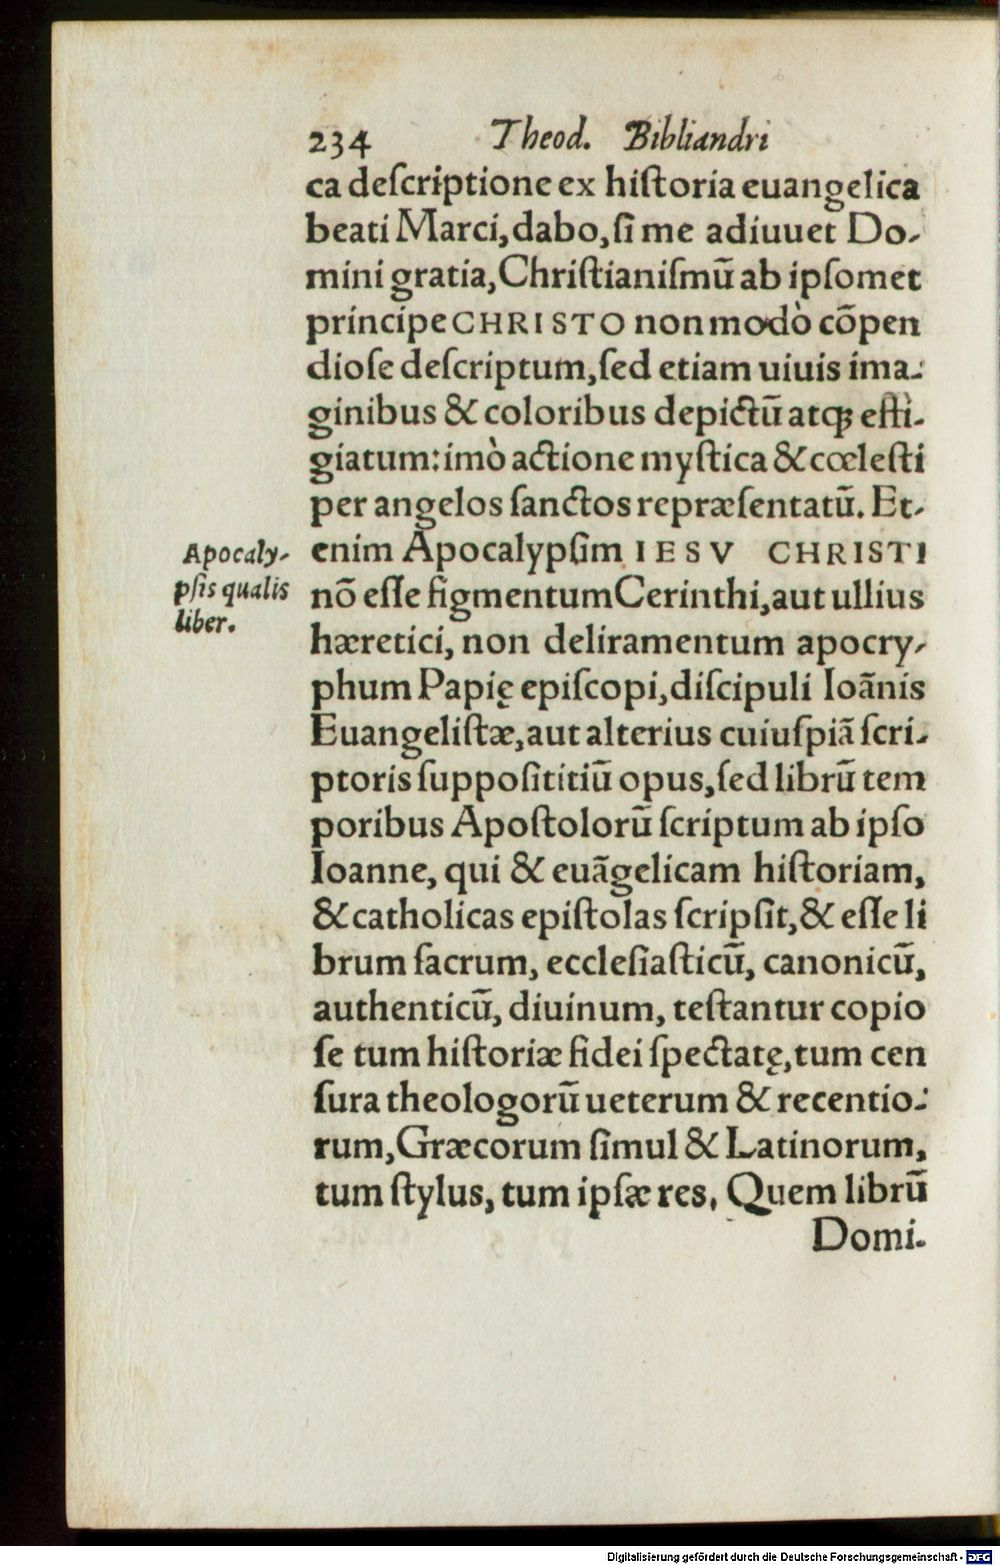 234 Theod. Bibliandri
ca deſcriptione ex hiſtoria euangelica
beati Marci, dabo, ſi me adiuuet Do-
mini gratia, Chriſtianiſmū ab ipſomet
principe CHRISTO non modò cōpen
dioſe deſcriptum, ſed etiam uiuis ima-
ginibus & coloribus depictū atqꝫ effi-
giatum: imò actione myſtica & cœleſti
per angelos ſanctos repræſentatū. Et-
Apocaly-
pſis qualis
liber.
enim Apocalypſim IESV CHRISTI
nō eſſe figmentum Cerinthi, aut ullius
hæretici, non deliramentum apocry-
phum Papię epiſcopi, diſcipuli Ioānis
Euangeliſtæ, aut alterius cuiuſpiā ſcri-
ptoris ſuppoſititiū opus, ſed librū tem
poribus Apoſtolorū ſcriptum ab ipſo
Ioanne, qui & euāgelicam hiſtoriam,
& catholicas epiſtolas ſcripſit, & eſſe li
brum ſacrum, eccleſiaſticū, canonicū,
authenticū, diuinum, teſtantur copio
ſe tum hiſtoriæ fidei ſpectatę, tum cen
ſura theologorū ueterum & recentio-
rum, Græcorum ſimul & Latinorum,
tum ſtylus, tum ipſæ res. Quem librū
Domi-
Digitalisierung gefördert durch die Deutsche Forschungsgemeinschaft - DFG